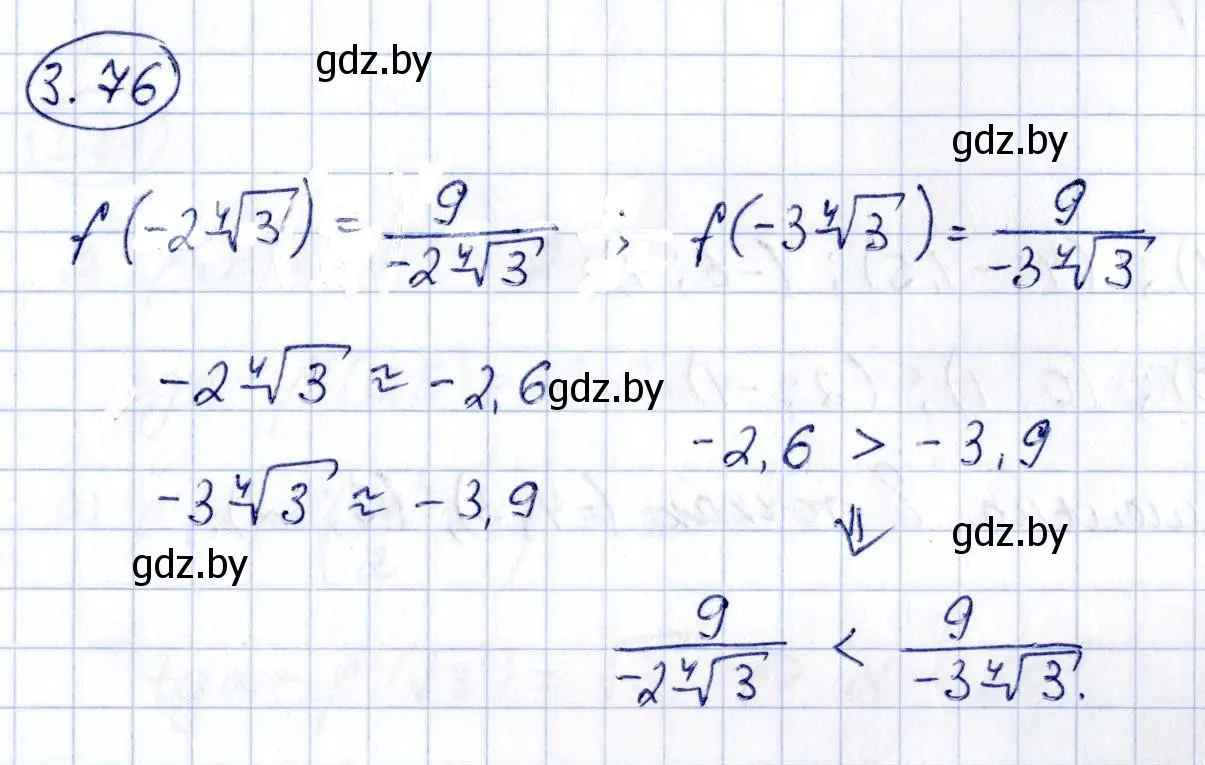 3.76
gdz.by
gdz.by
f(-2∜3) = 9/(-2∜3) ; f(-3∜3) = 9/(-3∜3)
-2∜3 ≈ -2,6
gdz.by
-2,6 > -3,9
-3∜3 ≈ -3,9
⇓
gdz.by
gdz.by
9/(-2∜3) < 9/(-3∜3).